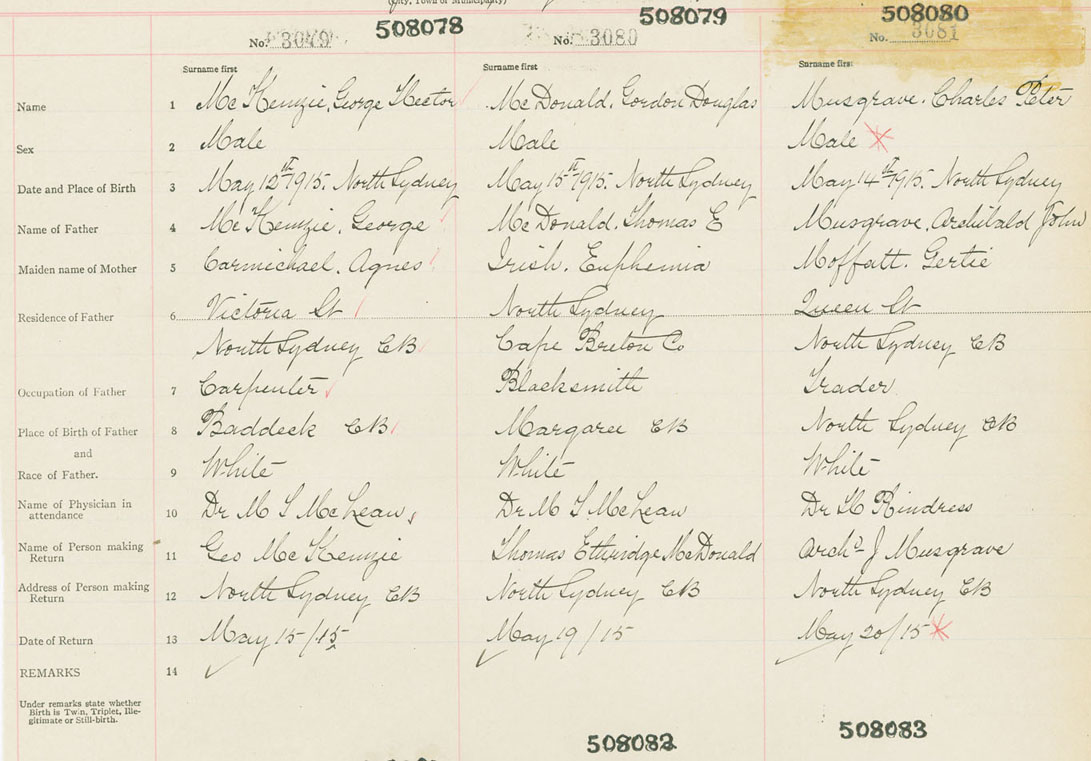 (City, Town or Municipality)
508078 508079 508080
No. 3079 No. 3080 No. 3081
Surname first Surname first Surname first
Name 1 McKenzie, George Hector McDonald, Gordon Douglas Musgrave, Charles Peter
Sex 2 Male Male Male
Date and Place of Birth 3 May 12th 1915. North Sydney May 15th 1915. North Sydney May 14th 1915. North Sydney
Name of Father 4 McKenzie, George McDonald, Thomas E Musgrave, Archibald John
Maiden name of Mother 5 Carmichael, Agnes Irish, Euphemia Moffatt, Gertie
Residence of Father 6 Victoria St North Sydney Queen St
North Sydney CB Cape Breton Co North Sydney CB
Occupation of Father 7 Carpenter Blacksmith Trader
Place of Birth of Father 8 Baddeck CB Margaree CB North Sydney CB
and
Race of Father. 9 White White White
Name of Physician in attendance 10 Dr M S McLean Dr M S McLean Dr Rindress
Name of Person making Return 11 Geo McKenzie Thomas Etheridge McDonald Archd J Musgrave
Address of Person making Return 12 North Sydney CB North Sydney CB North Sydney CB
Date of Return 13 May 15/15 May 19/15 May 20/15
REMARKS 14
Under remarks state whether
Birth is Twin, Triplet, Ille-
gitimate or Still-birth.
508082 508083